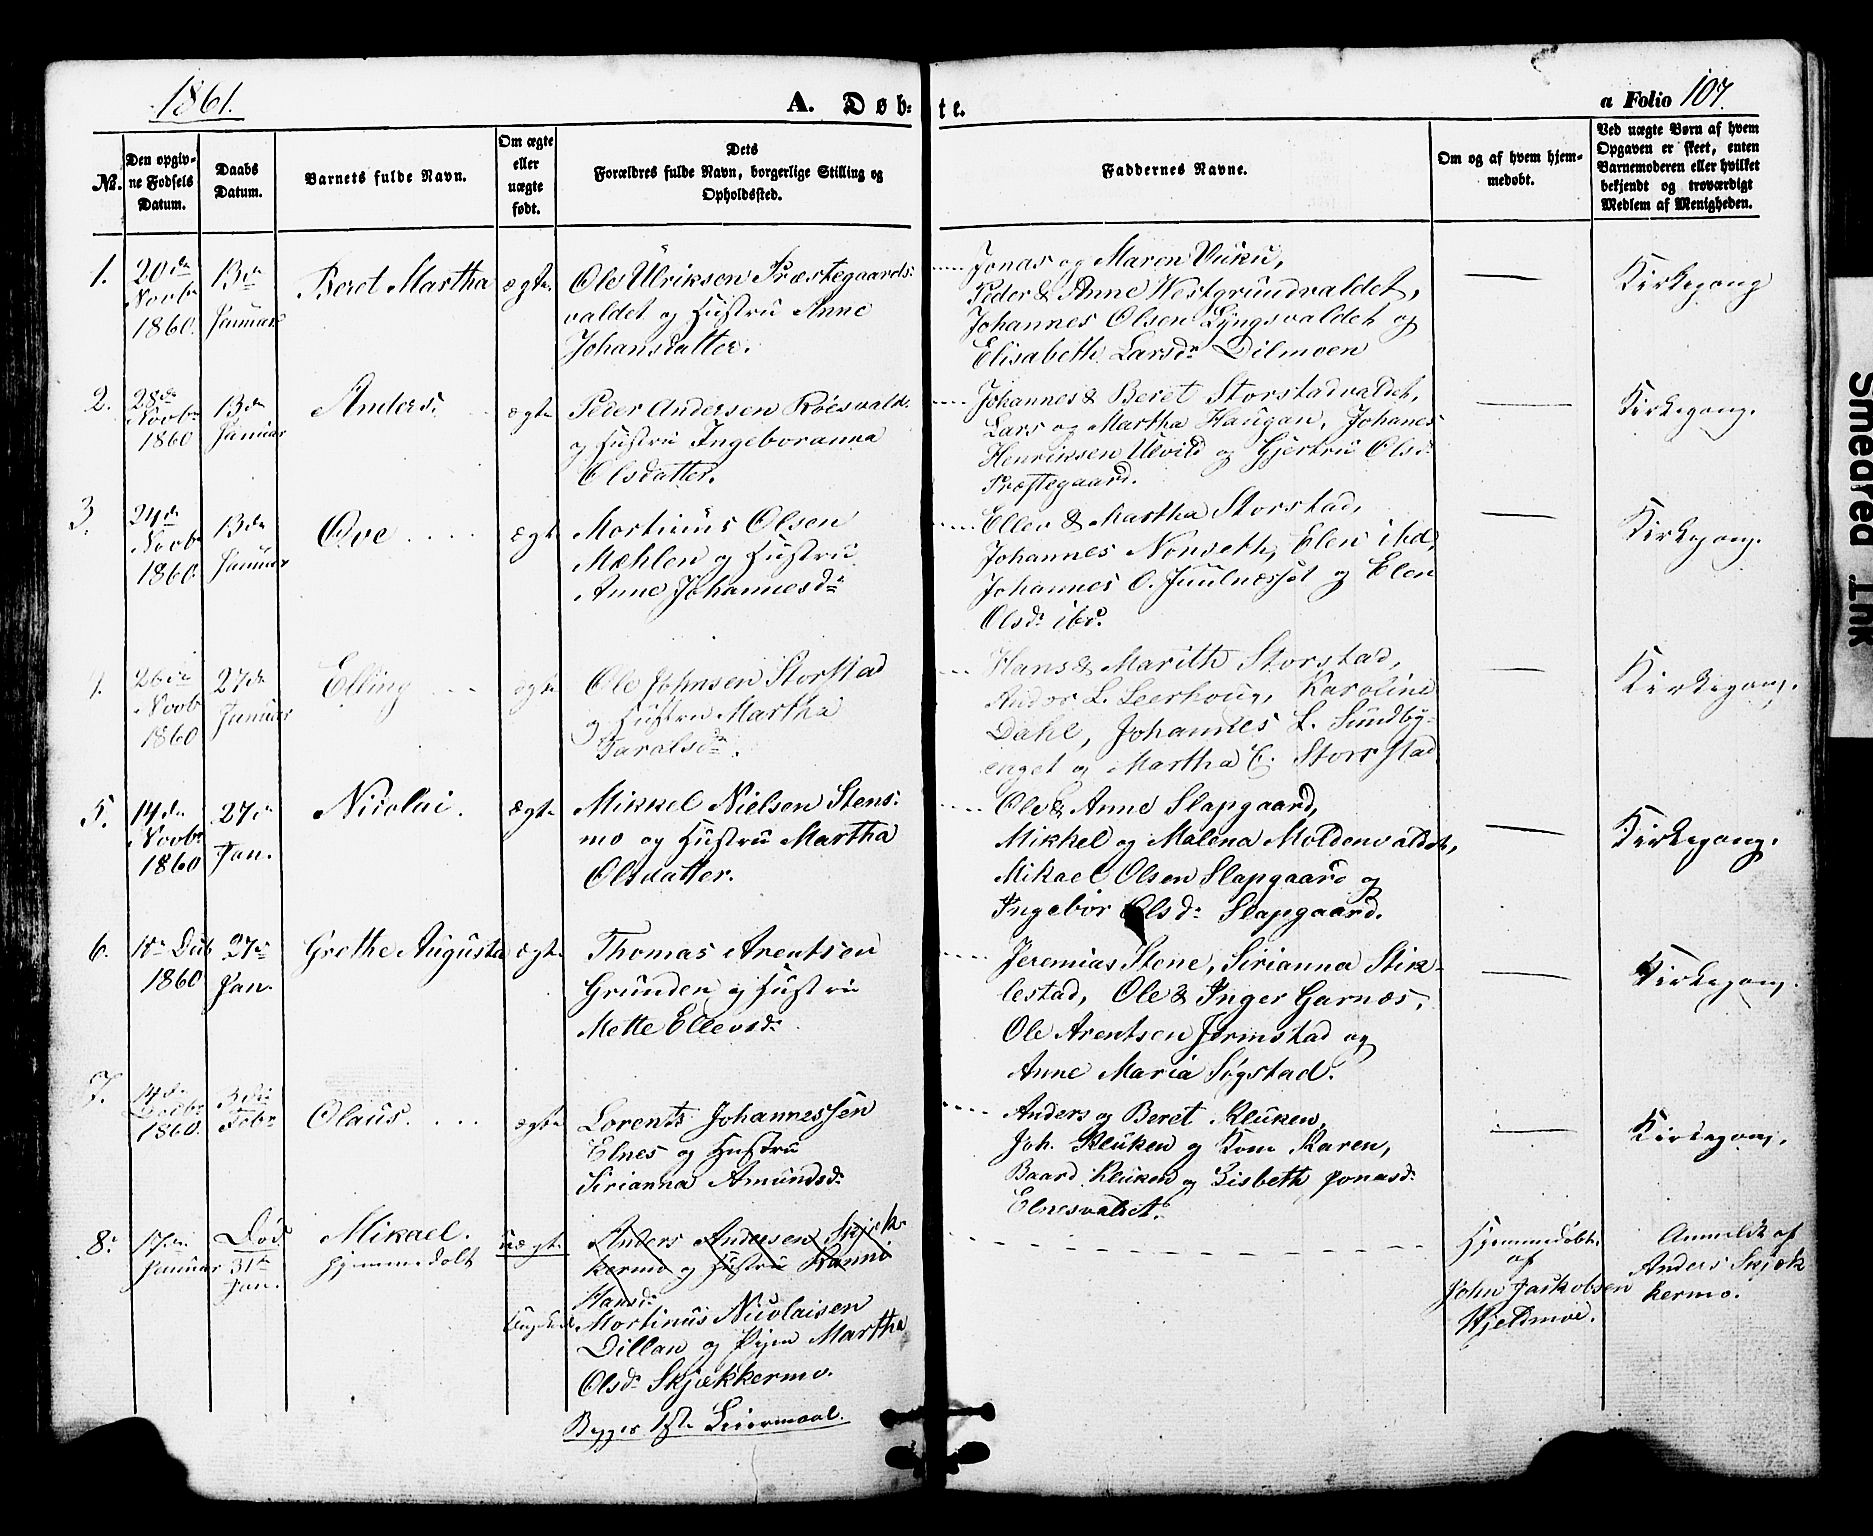 1861.
A. Døb=
te.
a Folio 107.
No.
Den opgiv-
ne Fødsels
Datum.
Daabs
Datum.
Barnets fulde Navn.
Om ægte
eller
uægte
født.
Dets
Forældres fulde Navn, borgerlige Stilling og
Opholdssted.
Faddernes Navne.
Om og af hvem hjem-
medøbt.
Ved uægte Børn af hvem
Opgaven er skeet, enten
Barnemoderen eller hvilket
bekjendt og troværdigt
Medlem af Menigheden.
1.
20de
Novbr
1860.
13de
Januar
Beret Martha
ægte.
Ole Ulriksen Præstegaards-
valdet og Hustru Anne
Johansdatter.
Jonas og Maren Vuku,
Peder & Anne Westgrundvaldet,
Johannes Olsen Lyngsvaldet og
Elisabeth Larsdr Dilmoen
—
Kirkegang
2.
28de
Novbr
1860
13de
Januar
Anders.
ægte
Peder Andersen Röesvald.
og Hustru Ingeboranna
Olsdatter.
Johannes & Beret Storstadvaldet,
Lars og Martha Haugan, Johanes
Henriksen Ulvild og Gjertru Olsd.
Præstegaard.
—
Kirkegang.
3.
24de
Novbr
1860.
13de
Januar
Ove
ægt.
Mortinus Olsen
Mæhlen og Hustru
Anne Johannesdr
Ellev & Martha Storstad,
Johannes Nonseth, Elen ibd,
Johannes O. Juulnesset og Elen
Olsdr ibd.
—
Kirkegang.
4.
26de
Novb
1860
27de
Januar
Elling
ægte
Ole Johnsen Storstad
og Hustru Martha
Taralsdr.
Hans & Marith Storstad,
Andor L. Leerhoug, Karoline
Dahl, Johannes L. Sundby-
enget og Martha E. Storstad
—
Kirkegang.
5.
14de
Novbr
1860
27de
Jan.
Nicolai.
ægte
Mikkel Nielsen Stens-
mo og Hustru Martha
Olsdatter.
Ole & Anne Slapgaard,
Mikkel og Malena Moldenvaldet,
Mikael Olsen Slapgaard og
Ingebor Olsdr Slapgaard.
—
Kirkegang.
6.
1860
27de
Jan.
Grethe Augusta
ægte.
Thomas Arentsen
Grunden og Hustru
Mette Ellevsdr
Jeremias Stene, Sirianna Stik-
lestad, Ole & Inger Garnæs,
Ole Arentsen Jermstad og
Anne Maria Søgstad.
—
Kirkegang.
7.
14de
Decbr
1860.
3die
Febr
Olaus.
ægte
Lorents Johannessen
Elnes og Hustru
Sirianna Amundsdr
Anders og Beret Kluken,
Joh. Kluken og Kone Karen,
Baard Kluken og Lisbeth Jonasdr
Elnesvaldet.
—
Kirkegang.
8.
17de
Januar
Død
31te
Jan.
Mikael.
hjemmedøbt
uægte.
Anders Andersen Skjæk-
kermo og Hustru
Hansd.
Mortinus Nicolaisen
Dillan og Pigen Martha
Olsdr Skjækkermo.
Begges 1ste Leiermaal.
Hjemmedøbt
af
John Jackobsen
Hjeldmoe.
Anmeldt af
Anders Skjæk
kermo.
Smeared Ink